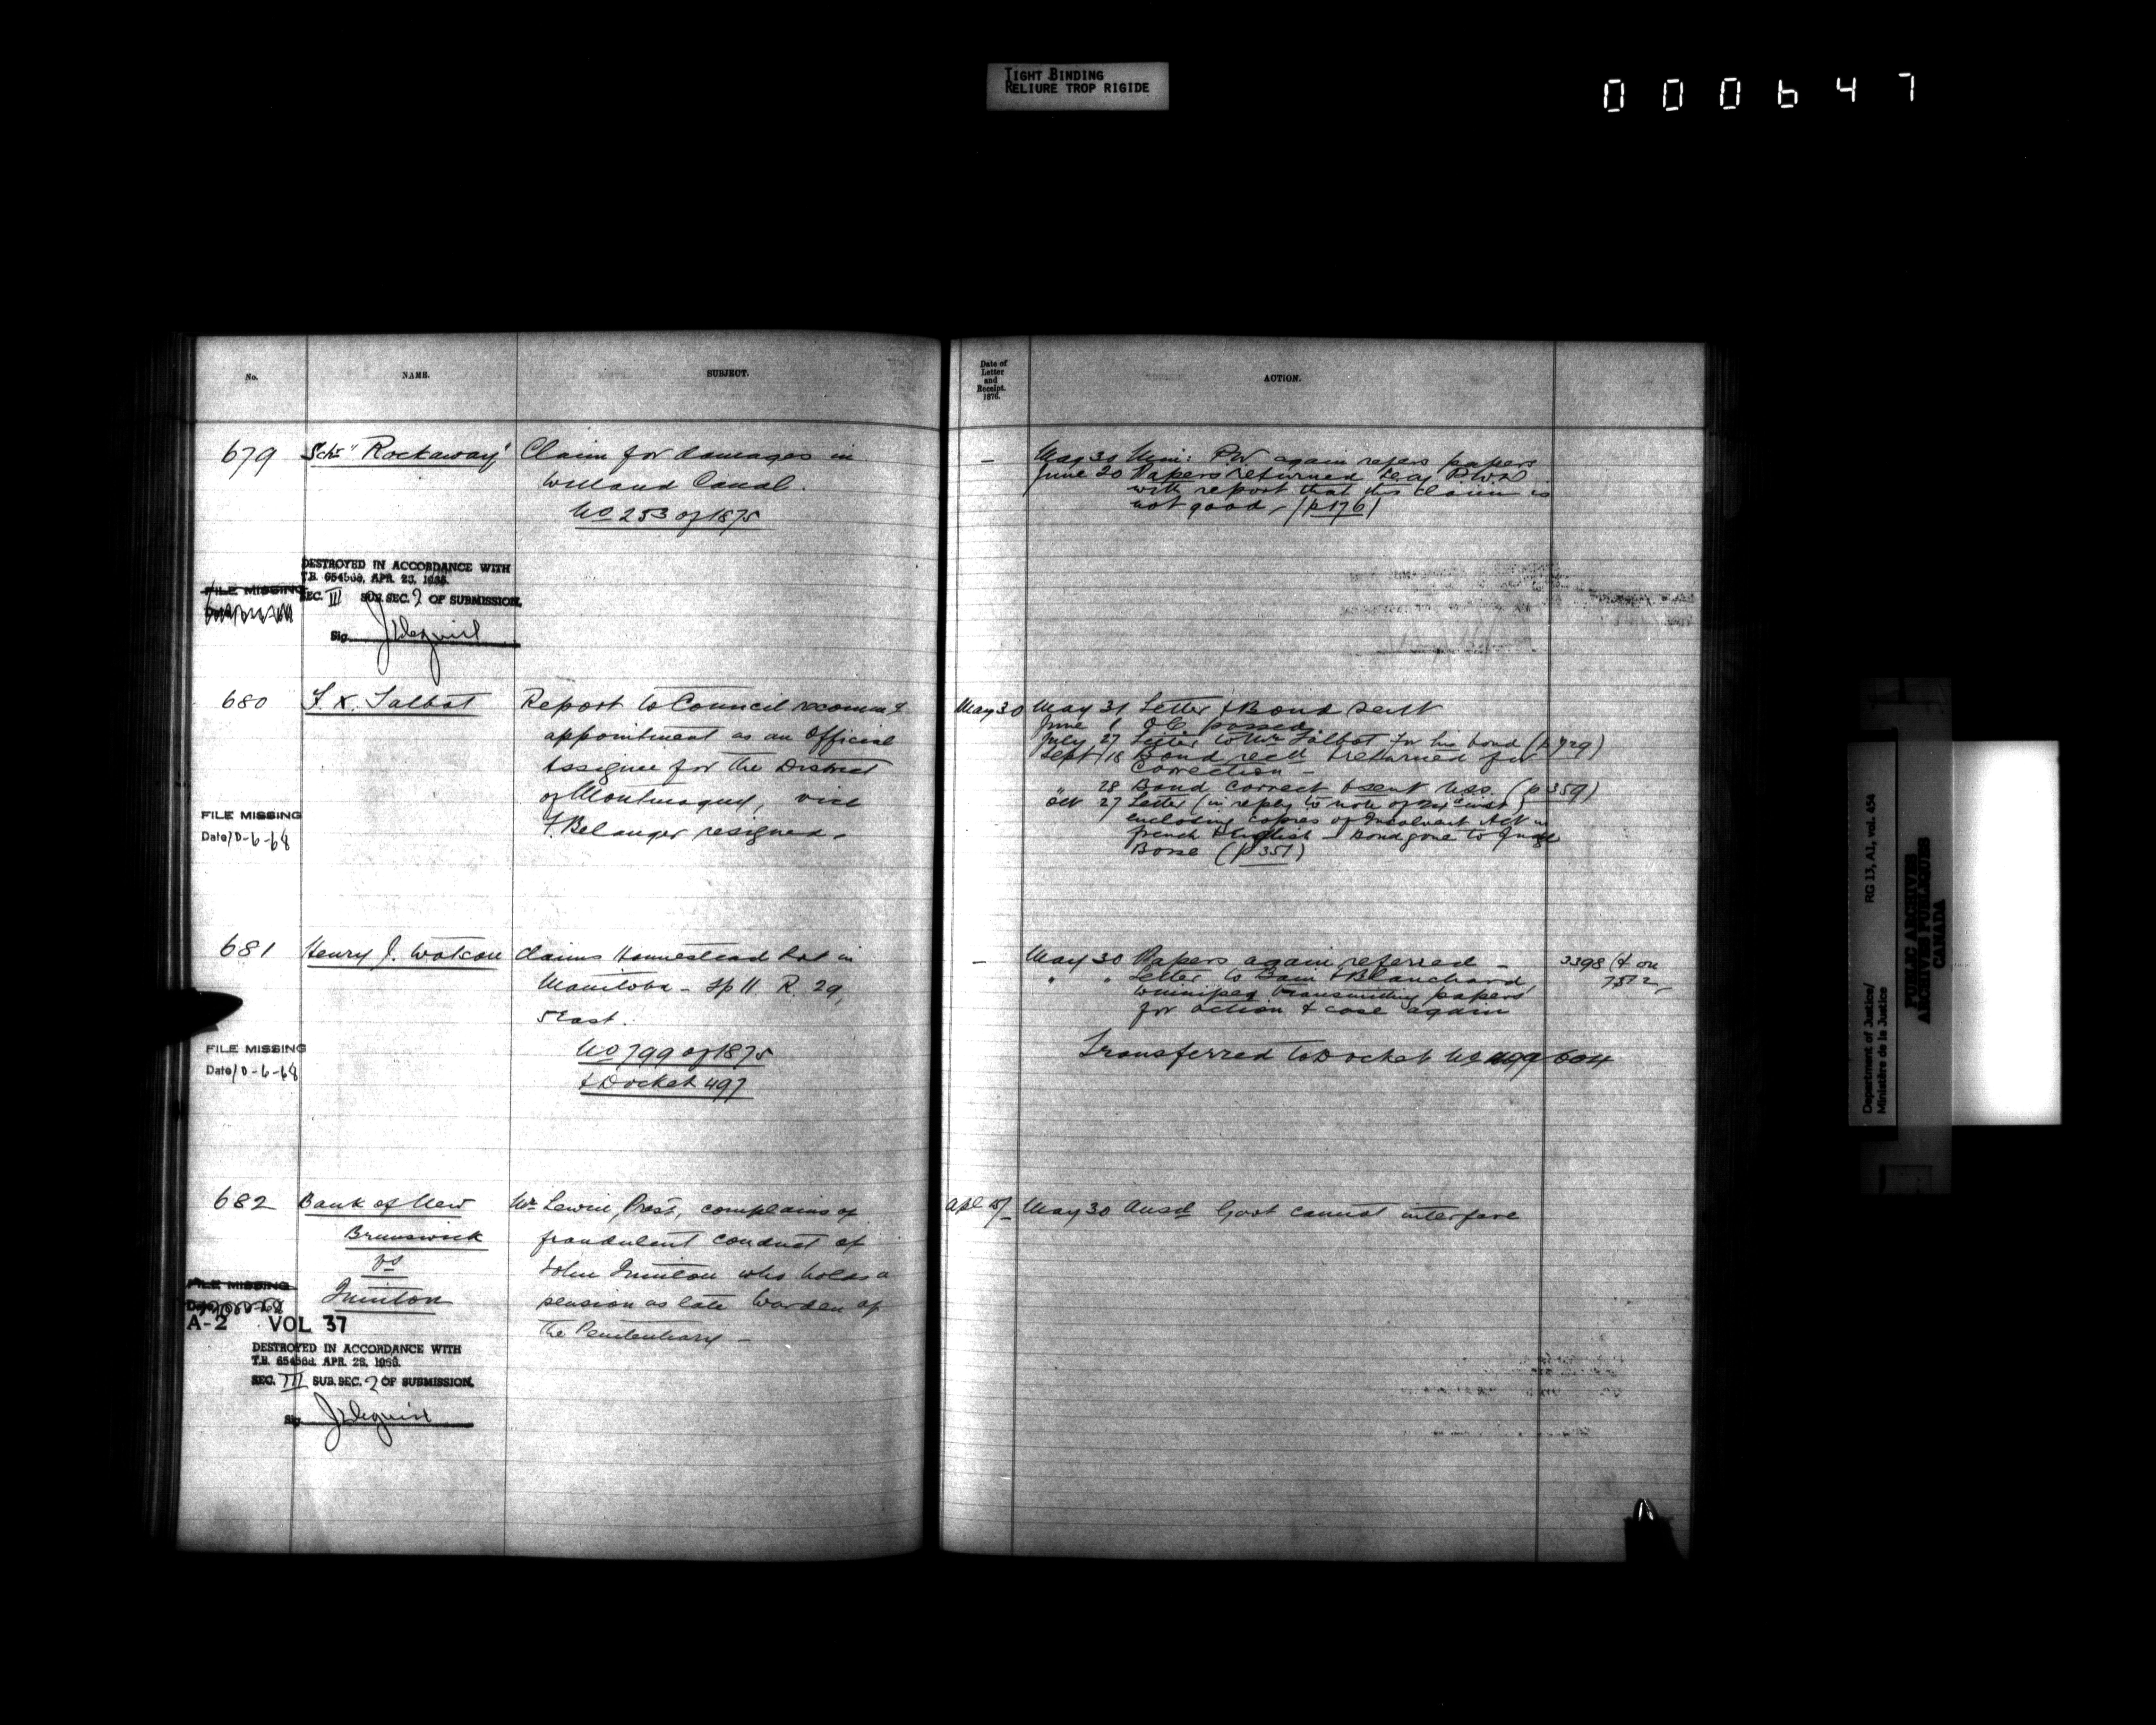 TIGHT BINDING
RELIURE TROP RIGIDE
000647
No. NAME. SUBJECT.
679 Schr "Rockaway" Claim for damages in
Welland Canal.
No 253 of 1875
DESTROYED IN ACCORDANCE WITH
T.B. 654568, APR. 28, 1966.
FILE MISSING
SEC. III SUB. SEC. 2 OF SUBMISSION.
Sig.
680 F. X. Talbot Report to Council recommg
appointment as an Official
Assignee for the District
of Montmagny, vice
F. Belanger resigned.
FILE MISSING
Date 10-6-68
681 Henry J. Watson Claims Homestead Lot in
Manitoba - Tp 11. R. 29,
5 East.
No 799 of 1875
& Docket 497
FILE MISSING
Date 10-6-68
682 Bank of New Mr. Lewin, Prest, complains of
Brunswick fraudulent conduct of
vs John Quinton who holds a
Quinton pension as late Warden of
the Penitentiary -
FILE MISSING
A-2 VOL 37
DESTROYED IN ACCORDANCE WITH
T.B. 654568, APR. 28, 1966.
SEC. III SUB. SEC. 2 OF SUBMISSION.
Sig.
Date of
Letter
and
Receipt.
1876.
ACTION.
— May 30 Min: P.W. again refers papers
June 20 Papers returned Secy P.W.D
with report that this claim is
not good - (p 176)
May 30 May 31 Letter & Bond sent
June 1 O.C. passed
July 27 Letter to Mr Talbot for his bond (p 729)
Sept 18 Bond recd & returned for
correction -
28 Bond correct & sent (p 359)
Oct 27 Letter (in reply to note of inst)
enclosing copies of Insolvent Act in
French & English - Bond gone to Judge
Bosse (p 351)
— May 30 Papers again referred - 3398 (& on
" " Letter to Bain & Blanchard, 7512
Winnipeg transmitting papers
for action & case again
Transferred to Docket No 604
Apl 15/ May 30 Ansd Govt cannot interfere
Department of Justice/ RG 13, A1, vol. 454
Ministère de la Justice
PUBLIC ARCHIVES
ARCHIVES PUBLIQUES
CANADA